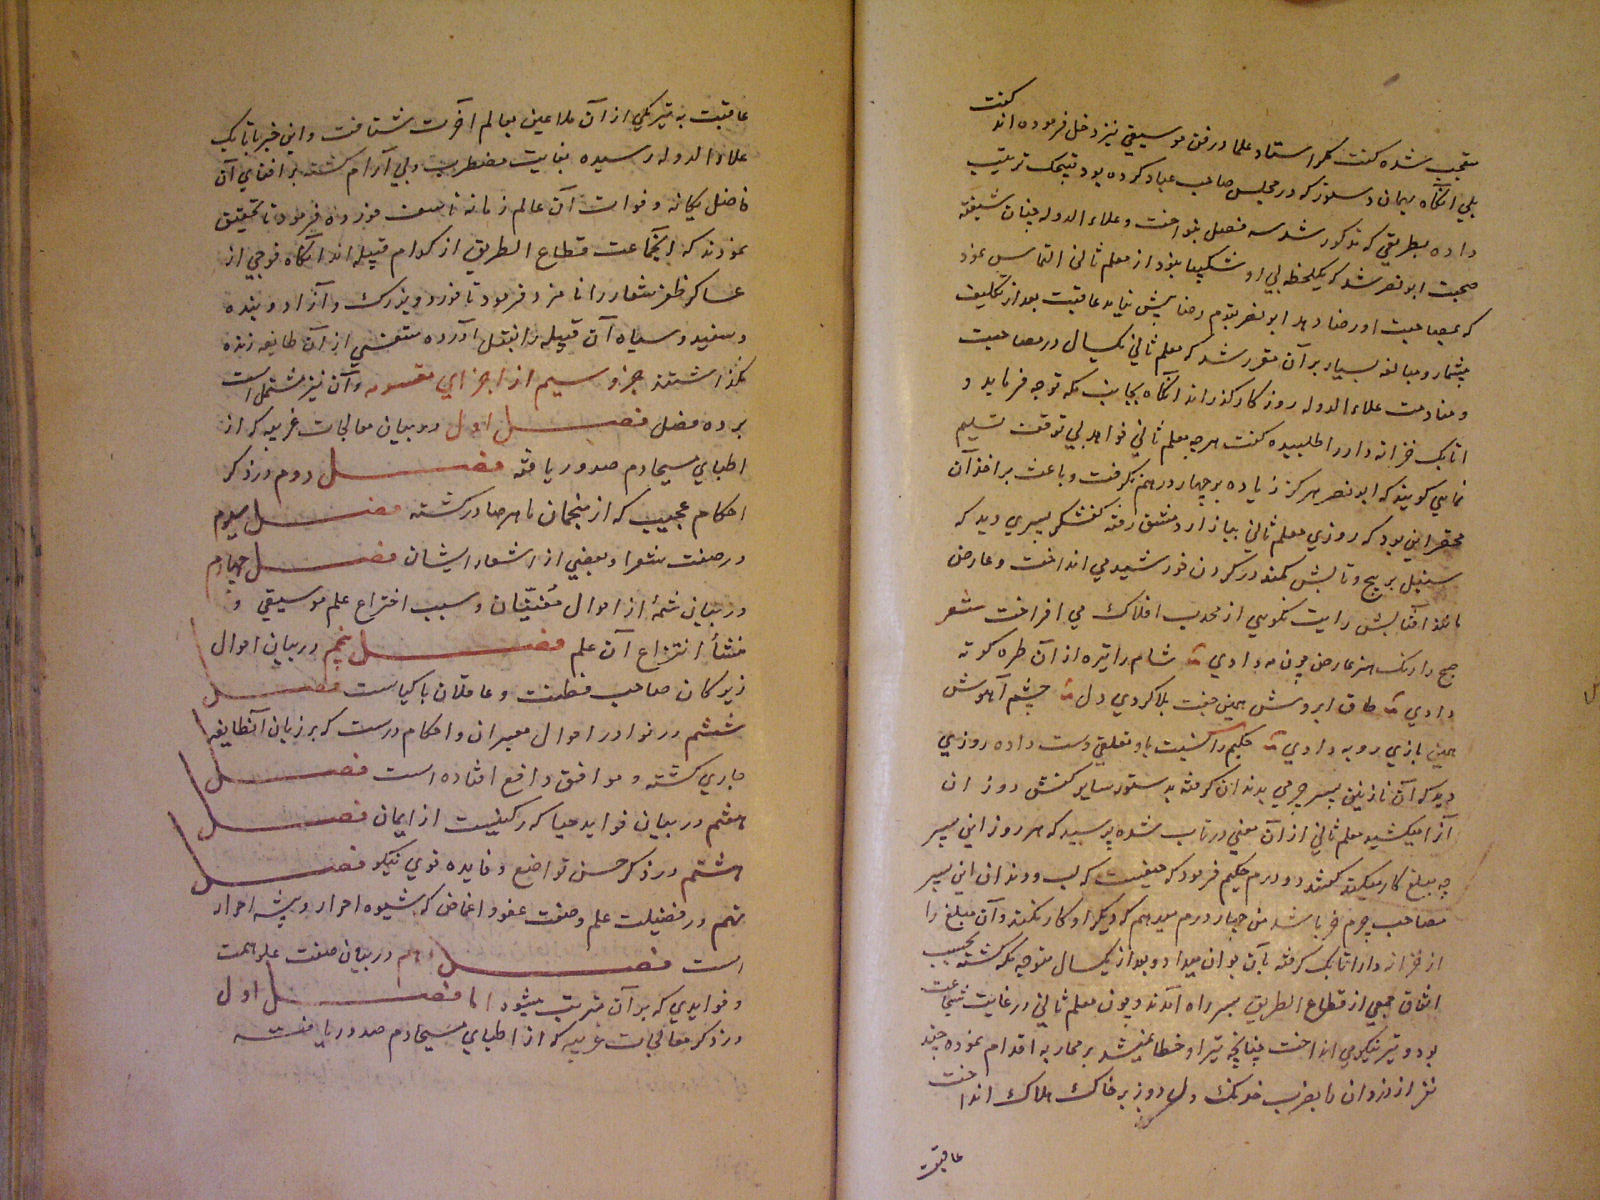 متعجب شده گفت مگر استاد علما در فن موسیقی نیز دخل فرموده اند گفت
بلی انگاه بهمان دستور که در مجلس صاحب عباد کرده بود تیجک ترتیب
داده بطریقی که مذکور شد سه فصل بنواخت و علاء الدوله چنان شیفته
صحبت ابونصر شد که یکلحظه بی او شکیبا نبود از معلم ثانی التماس نمود
که بمصاحبت او رضا دهد ابونصر بقدم رضا پیش نیامد عاقبت بعد از تکلیف
بیشمار و مبالغه بسیار بر آن مقرر شد که معلم ثانی یکسال در مصاحبت
و منادمت علاء الدوله روزگار گذراند انگاه بجانب مکه توجه فرماید و
اتابک خزانه دار را طلبیده گفت هرچه معلم ثانی خواهد بی توقف تسلیم
نمایی گویند که ابونصر هرگز زیاده بر چهار درهم نگرفت و باعث بر اخذ آن
محقر این بود که روزی معلم ثانی ببازار دمشق رفته کفشگر پسری دید که
سنبل پر پیچ و تابش کمند در گردن خورشید می انداخت و عارض
مانند آفتابش رایت نکویی از محدب افلاک می افراخت شعر
صبح را رنک از عارض چون مه دادی شام را تیره از آن طره کوته
دادی طاق ابروش بهین جفت بلا کردی دل چشم آهوش
بهین بازی روبه دادی حکیم را نسبت باو تعلقی دست داده روزی
دید که آن نازنین پسر چرمی بدندان گرفته بدستور سایر کفش دوزان
آنرا میکشید معلم ثانی از آن معنی در تاب شده پرسید که هر روز این پسر
چه مبلغ کار میکند گفتند دو درم حکیم فرمود که حیفست که لب و دندان این پسر
مصاحب چرم خر باشد من چهار درم میدهم که دیگر او کار نکند و آن مبلغ را
از خزانه دار اتابک گرفته بآن جوان میداد و بعد از یکسال متوجه مکه گشته بحسب
اتفاق جمعی از قطاع الطریق بسر راه آمدند و چون معلم ثانی در غایت شجاعت
بود و تیر نیکو می انداخت چنانچه تیر او خطا نمیشد بر محاربه اقدام نموده چند
نفر از دزدان را بضرب خدنگ دل دوز بر خاک هلاک انداخت
عاقبت
عاقبت به تیر یکی از آن ملاعین بعالم آخرت شتافت و این خبر باتابک
علاء الدوله رسیده بغایت مضطرب و بی آرام گشته بر افنای آن
فاضل یگانه و فوات آن عالم زمانه تاسف خورده فرمود تا تحقیق
نمودند که آنجماعت قطاع الطریق از کدام قبیله اند انگاه فوجی از
عساکر ظفر شعار را نامزد فرمود تا خورد و بزرک و آزاد و بنده
و سفید و سیاه آن قبیله را بقتل آورده متنفسی از آن طایفه زنده
نگذاشتند جزو سیم از اجزای مقسومه و آن نیز مشتمل است
بر ده فصل فصل اول در بیان معالجات غریبه که از
اطبای مسیحا دم صدور یافته فصل دوم در ذکر
احکام عجیب که از منجمان ماهر صادر گشته فصل سیوم
در صفت شعرا و بعضی از اشعار ایشان فصل چهارم
در بیان شمهٔ از احوال مُغنّیّان و سبب اختراع علم موسیقی و
منشأ انتزاع آن علم فصل پنجم در بیان احوال
زیرکان صاحب فطنت و عاقلان با کیاست فصل
ششم در نوادر احوال معبران و احکام درست که بر زبان آنطایفه
جاری گشته و موافق واقع افتاده است فصل
هفتم در بیان فواید حیا که رکنیست از ایمان فصل
هشتم در ذکر حسن تواضع و فایده خوی نیکو فصل
نهم در فضیلت علم و صفت عفو و اغماض که شیوه احرار و پیشه احرار
است فصل دهم در بیان صفت علو همت
و فوایدی که بر آن مترتب میشود اما فصل اول
در ذکر معالجات غریبه که از اطبای مسیحا دم صدور یافته